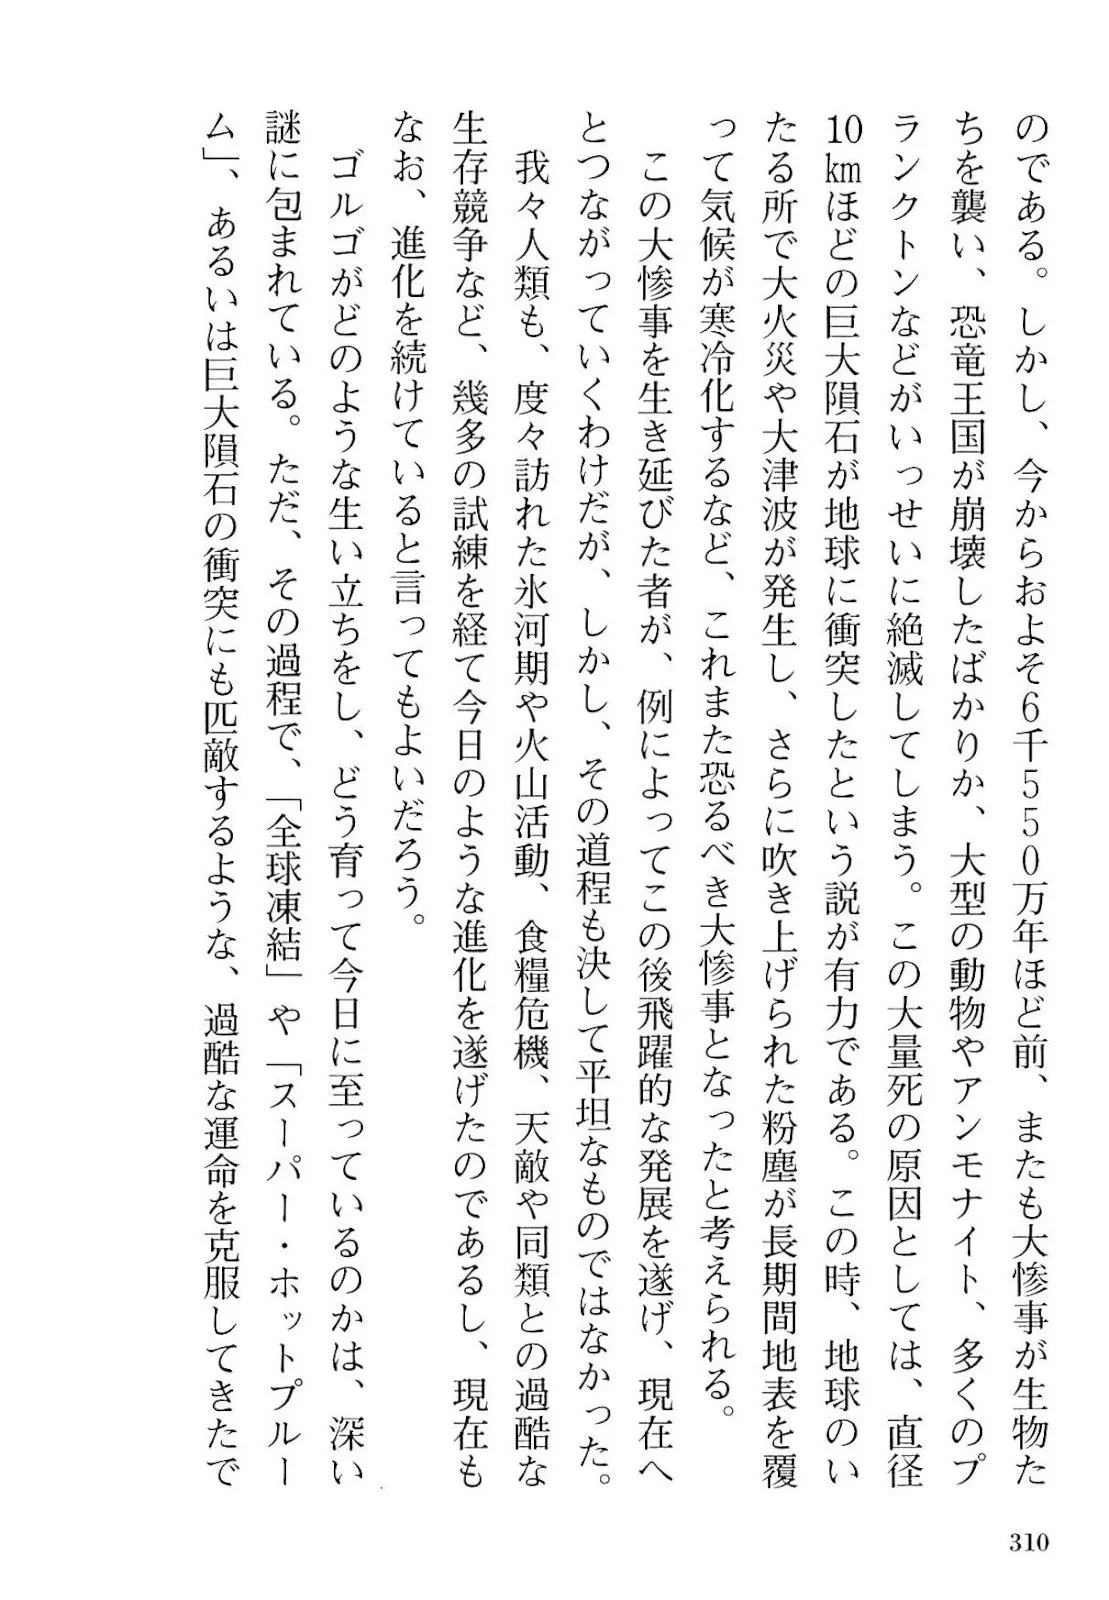 のである。しかし、今からおよそ6千550万年ほど前、またも大惨事が生物た
ちを襲い、恐竜王国が崩壊したばかりか、大型の動物やアンモナイト、多くのプ
ランクトンなどがいっせいに絶滅してしまう。この大量死の原因としては、直径
10㎞ほどの巨大隕石が地球に衝突したという説が有力である。この時、地球のい
たる所で大火災や大津波が発生し、さらに吹き上げられた粉塵が長期間地表を覆
って気候が寒冷化するなど、これまた恐るべき大惨事となったと考えられる。
この大惨事を生き延びた者が、例によってこの後飛躍的な発展を遂げ、現在へ
とつながっていくわけだが、しかし、その道程も決して平坦なものではなかった。
我々人類も、度々訪れた氷河期や火山活動、食糧危機、天敵や同類との過酷な
生存競争など、幾多の試練を経て今日のような進化を遂げたのであるし、現在も
なお、進化を続けていると言ってもよいだろう。
ゴルゴがどのような生い立ちをし、どう育って今日に至っているのかは、深い
謎に包まれている。ただ、その過程で、「全球凍結」や「スーパー・ホットプルー
ム」、あるいは巨大隕石の衝突にも匹敵するような、過酷な運命を克服してきたで
310